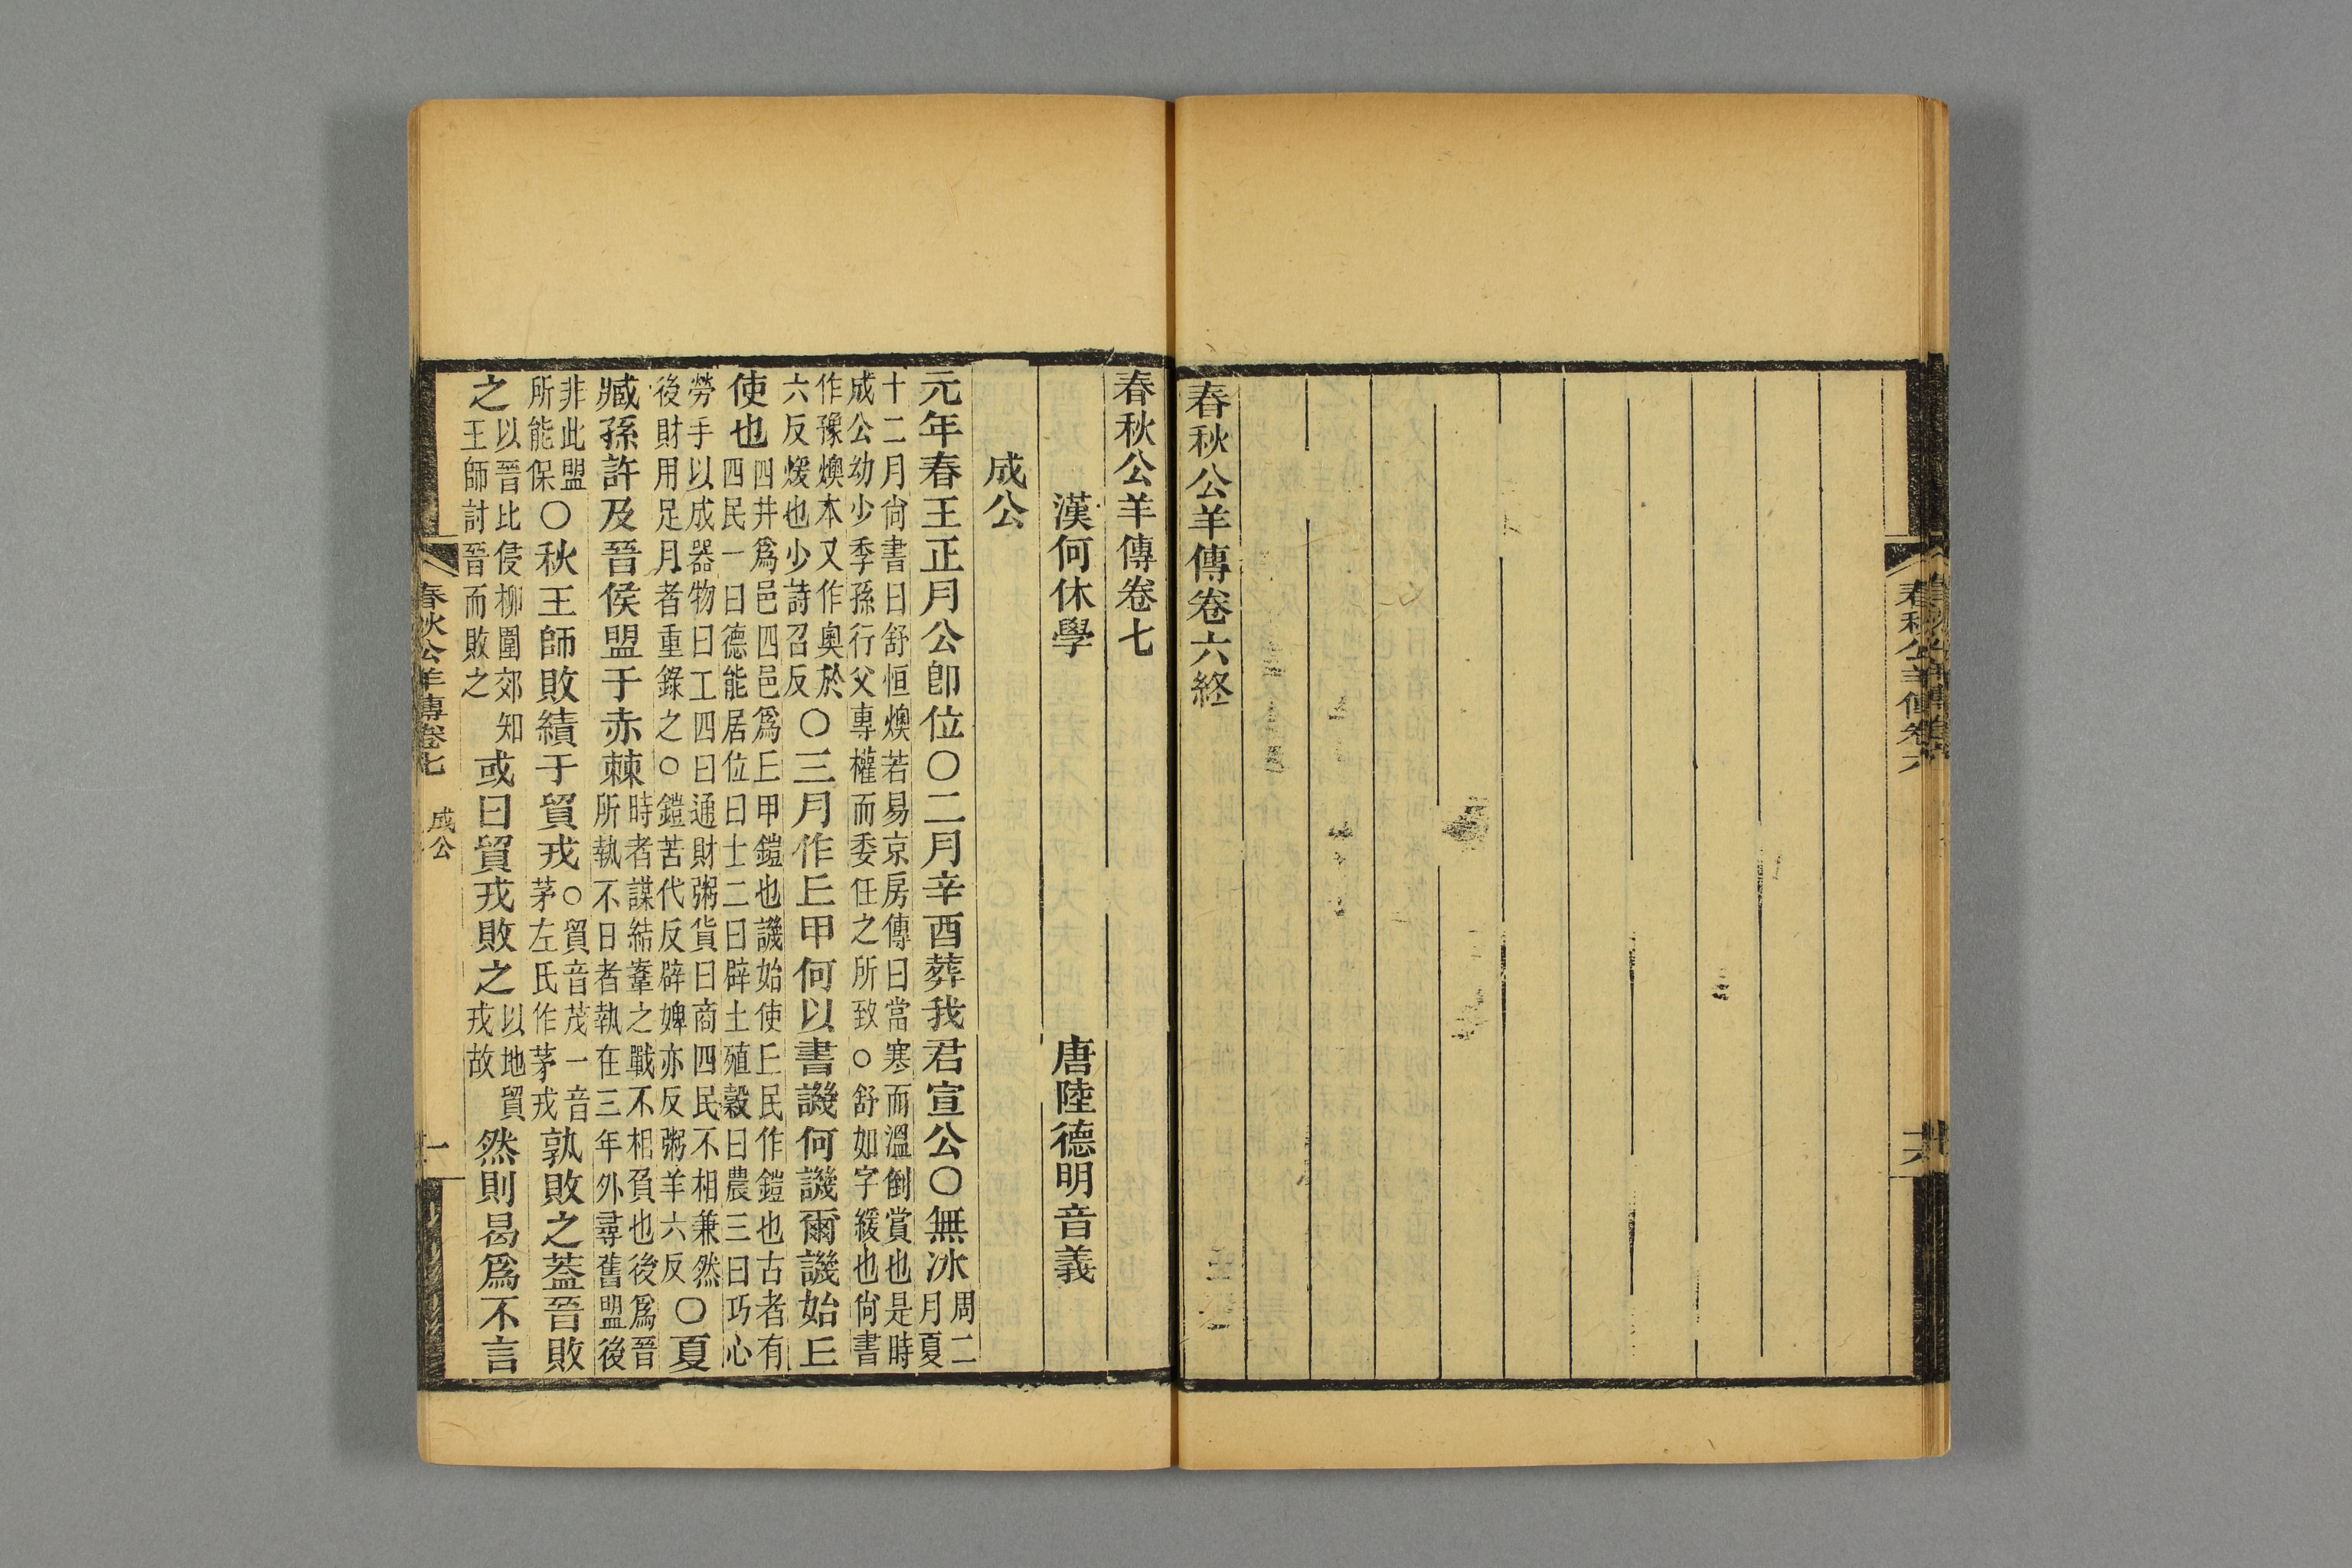 春秋公羊傳卷六
春秋公羊傳卷六終
春秋公羊傳卷七
漢何休學 唐陸德明音義
成公
元年春王正月公卽位〇二月辛酉葬我君宣公〇無冰周二月夏
十二月尙書曰舒恒燠若易京房傳曰當寒而溫倒賞也是時
成公幼少季孫行父專權而委任之所致○舒如字緩也尙書
作豫燠本又作奧於六反煖也少詩召反〇三月作丘甲何以書譏何譏爾譏始丘
使也四井爲邑四邑爲丘甲鎧也譏始使丘民作鎧也古者有四民一曰德能居位曰士二曰辟土殖穀曰農三曰巧心
勞手以成器物曰工四曰通財粥貨曰商四民不相兼然後財用足月者重錄之○鎧苦代反辟婢亦反粥羊六反〇夏
臧孫許及晉侯盟于赤棘時者謀結鞌之戰不相負也後爲晉所執不日者執在三年外尋舊盟後
非此盟所能保〇秋王師敗績于貿戎○貿音茂一音茅左氏作茅戎孰敗之蓋晉敗
之以晉比侵柳圍郊知王師討晉而敗之或曰貿戎敗之以地貿戎故然則曷爲不言
春秋公羊傳卷七 成公 一